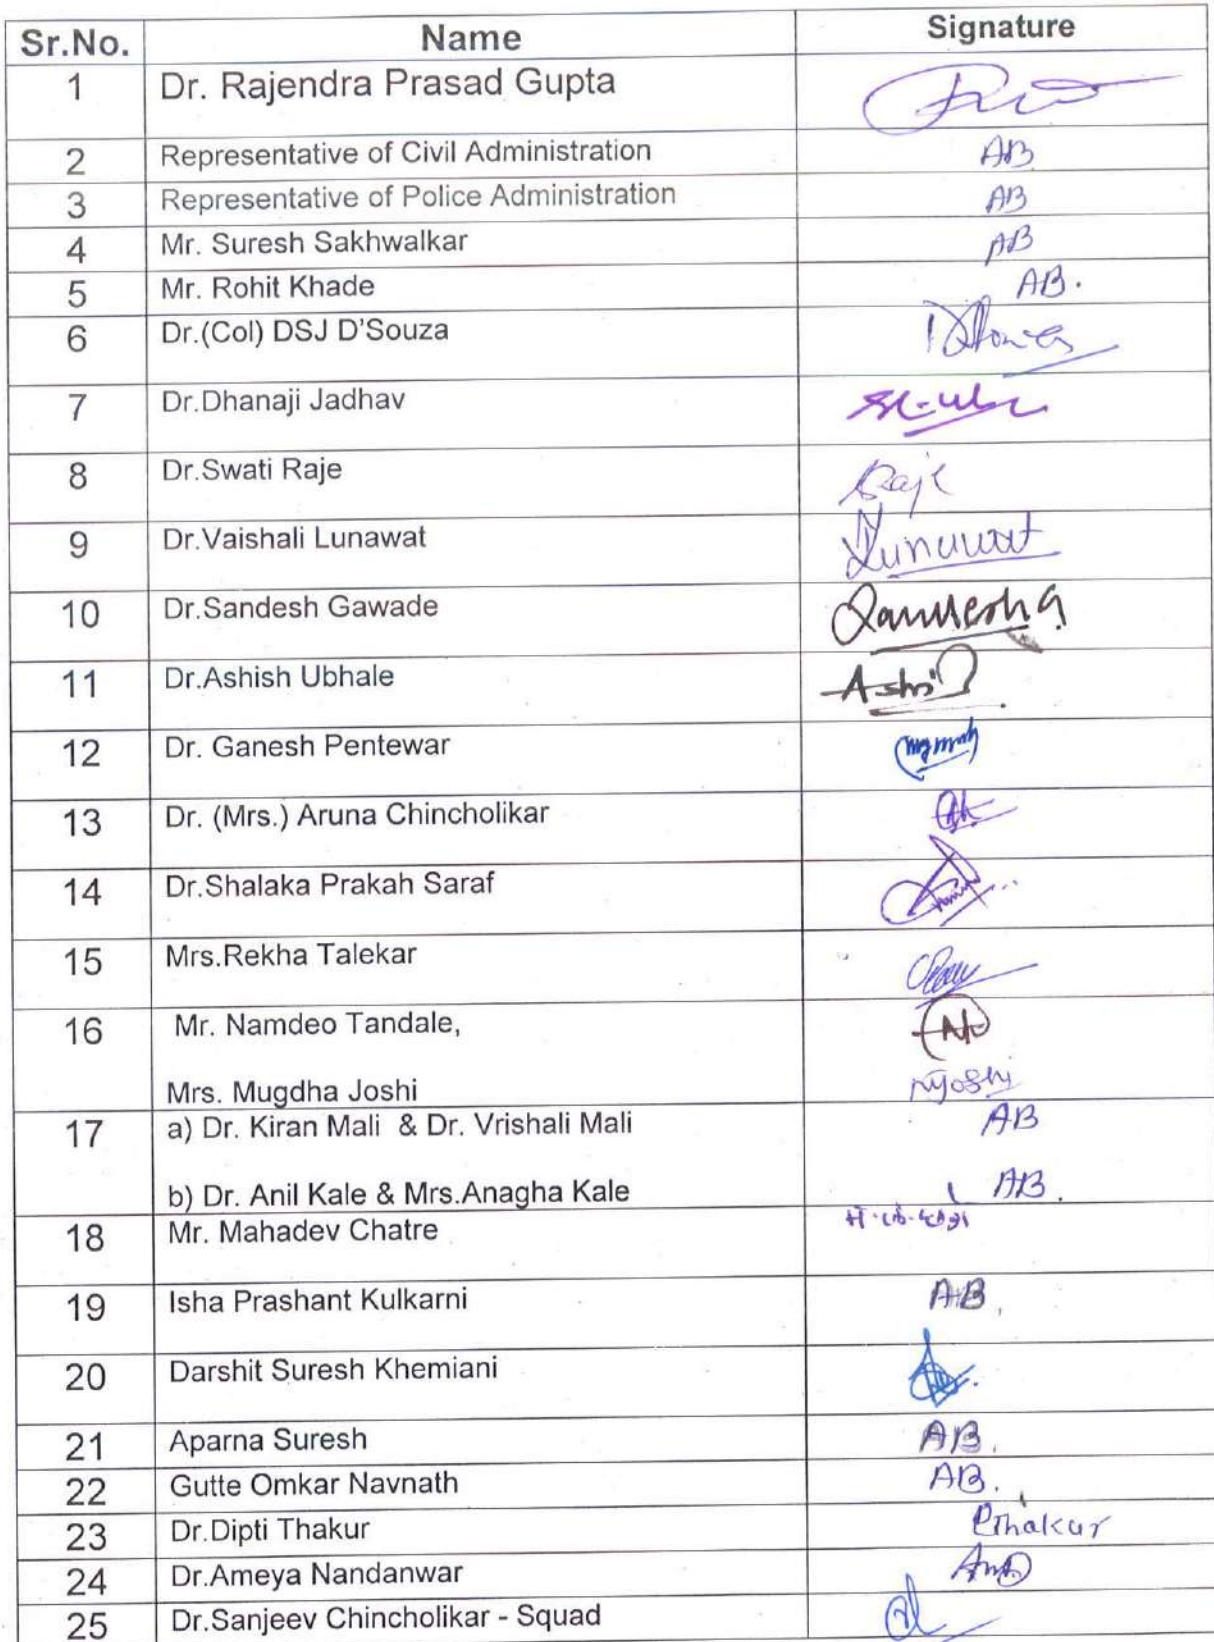 Sr.No. Name Signature
1 Dr. Rajendra Prasad Gupta
2 Representative of Civil Administration AB
3 Representative of Police Administration AB
4 Mr. Suresh Sakhwalkar AB
5 Mr. Rohit Khade AB.
6 Dr.(Col) DSJ D'Souza
7 Dr.Dhanaji Jadhav
8 Dr.Swati Raje Raje
9 Dr.Vaishali Lunawat Lunawat
10 Dr.Sandesh Gawade
11 Dr.Ashish Ubhale
12 Dr. Ganesh Pentewar
13 Dr. (Mrs.) Aruna Chincholikar
14 Dr.Shalaka Prakah Saraf
15 Mrs.Rekha Talekar
16 Mr. Namdeo Tandale,
Mrs. Mugdha Joshi Mjoshi
17 a) Dr. Kiran Mali & Dr. Vrishali Mali AB
b) Dr. Anil Kale & Mrs.Anagha Kale AB.
18 Mr. Mahadev Chatre
19 Isha Prashant Kulkarni AB,
20 Darshit Suresh Khemiani
21 Aparna Suresh AB.
22 Gutte Omkar Navnath AB.
23 Dr.Dipti Thakur
24 Dr.Ameya Nandanwar
25 Dr.Sanjeev Chincholikar - Squad